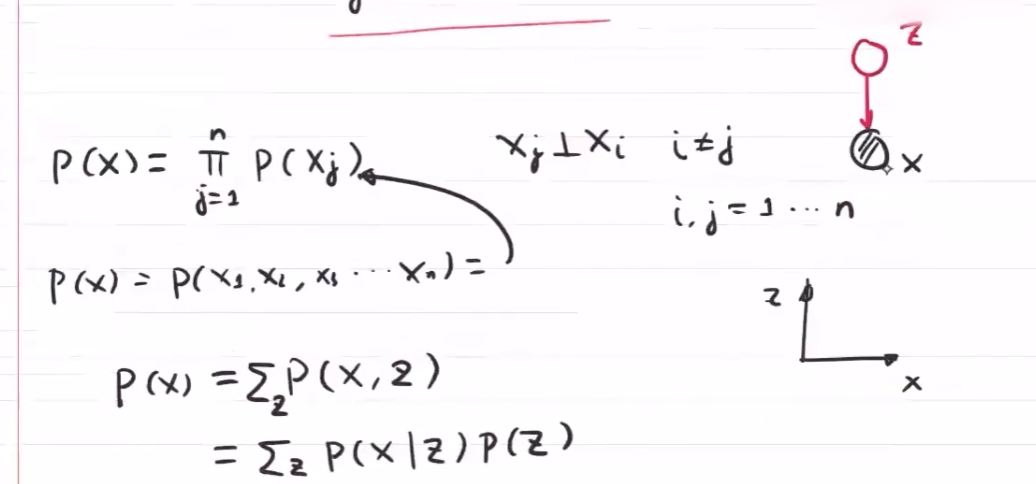 z
P(x) = ∏ⱼ₌₁ⁿ P(xⱼ) xⱼ ⊥ xᵢ i ≠ j
x
i, j = 1 ... n
P(x) = P(x₁, x₂, x₃ ... xₙ) =
z
x
P(x) = Σ_z P(x, z)
= Σ_z P(x|z) P(z)